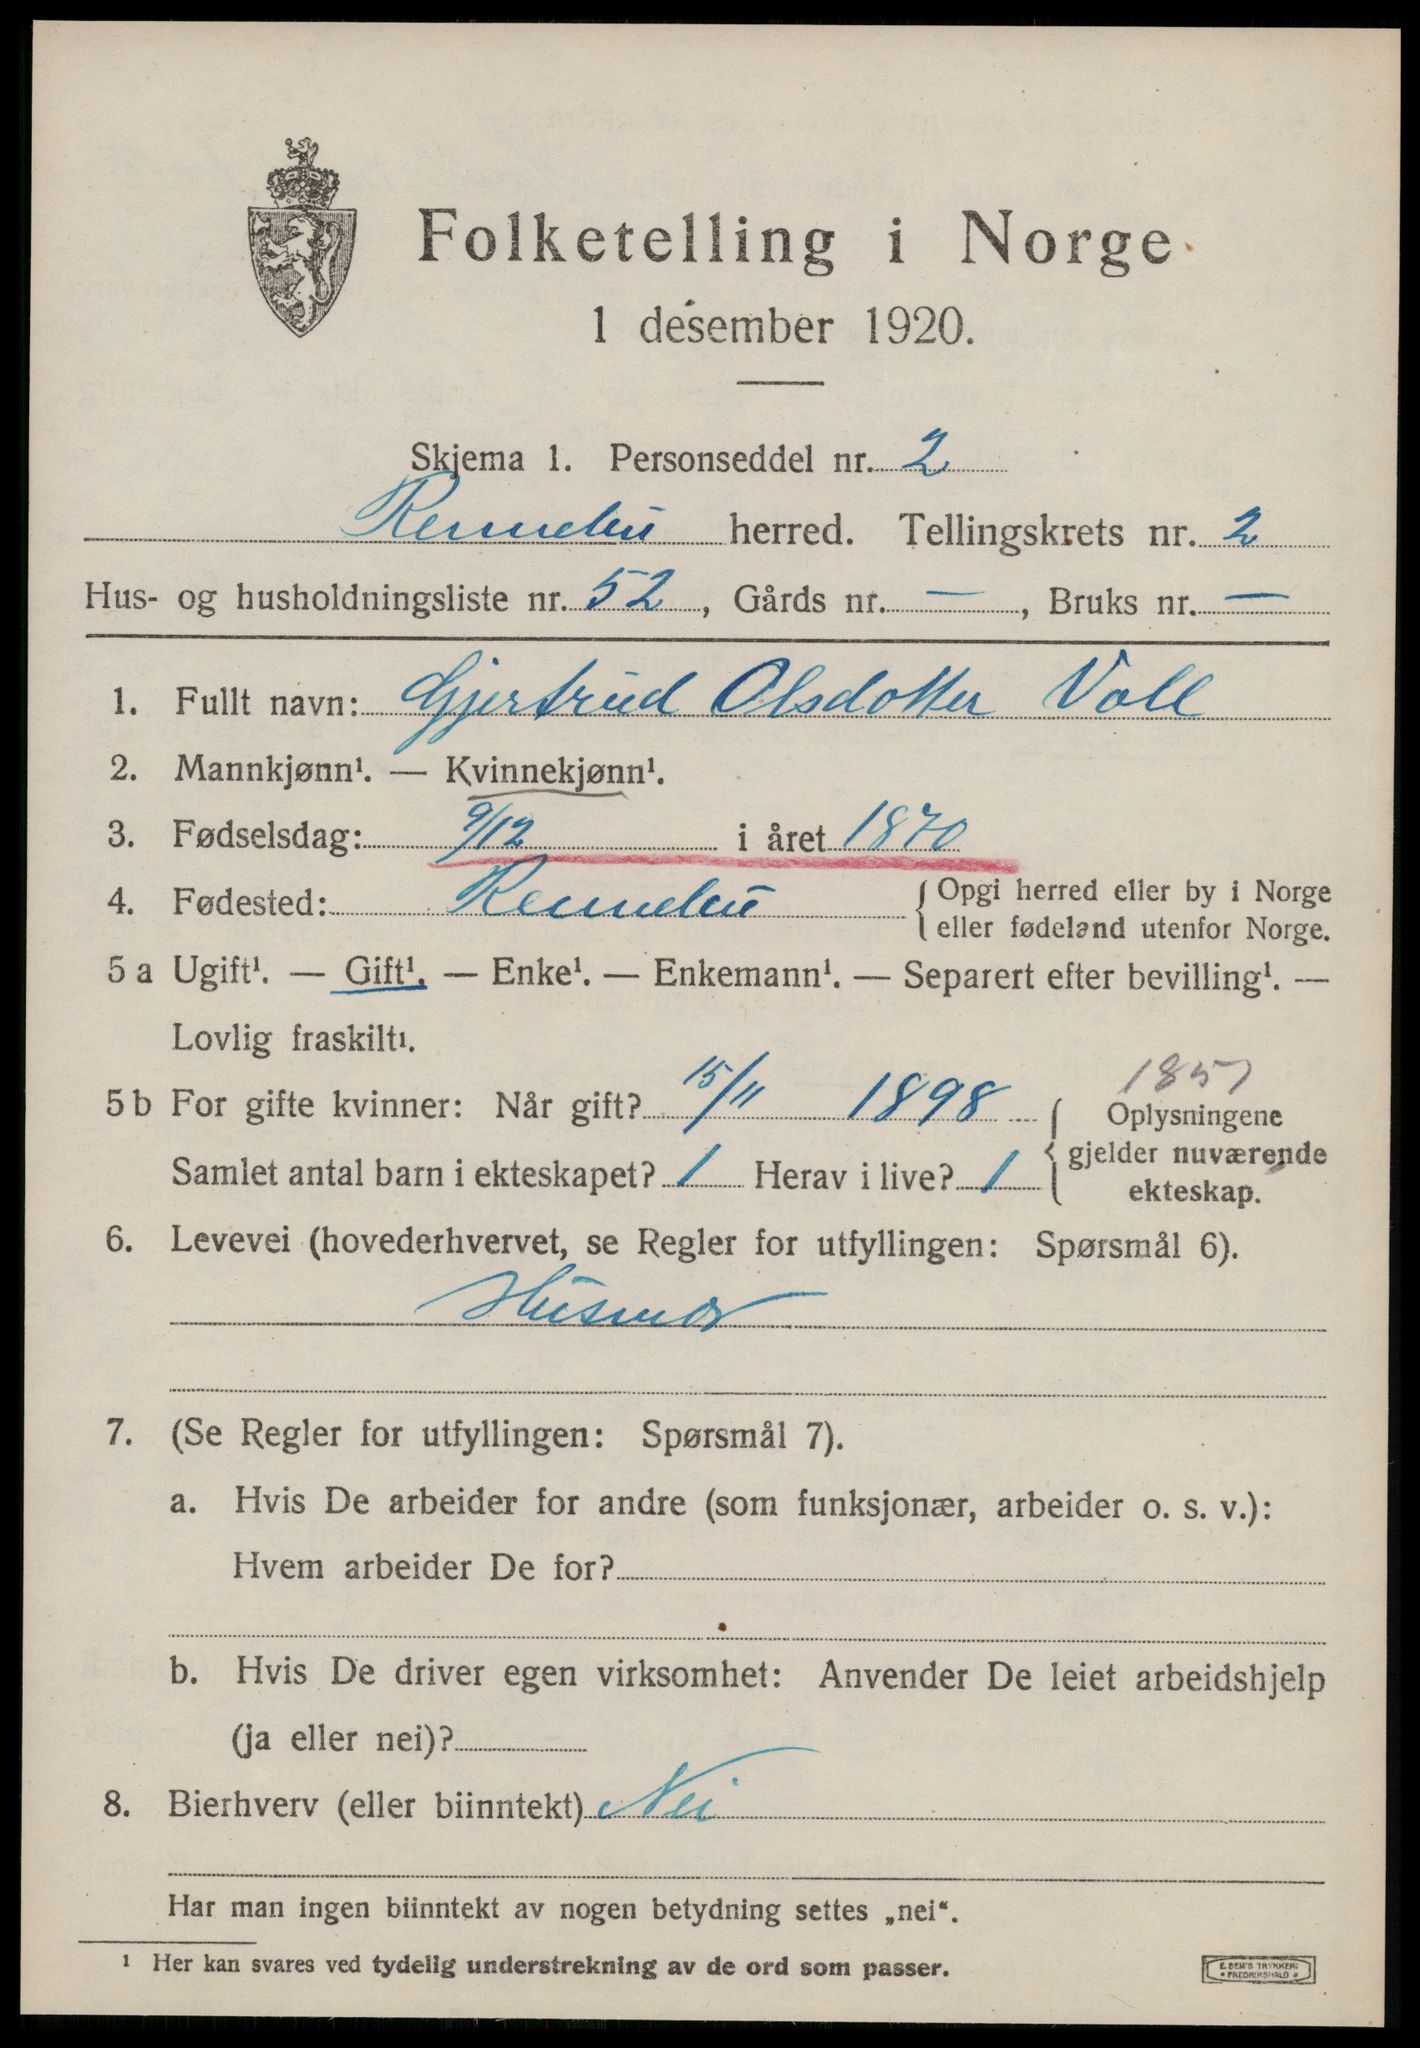 Folketelling i Norge
1 desember 1920.
Skjema 1. Personseddel nr. 2
Rennebu herred. Tellingskrets nr. 2
Hus- og husholdningsliste nr. 52, Gårds nr. —, Bruks nr. —
1. Fullt navn: Gjertrud Olsdotter Voll
2. Mannkjønn¹. — Kvinnekjønn¹.
3. Fødselsdag: 9/12 i året 1870
4. Fødested: Rennebu { Opgi herred eller by i Norge
eller fødeland utenfor Norge.
5 a Ugift¹. — Gift¹. — Enke¹. — Enkemann¹. — Separert efter bevilling¹. —
Lovlig fraskilt¹.
1851
5 b For gifte kvinner: Når gift? 15/11 1898 { Oplysningene
gjelder nuværende
ekteskap.
Samlet antal barn i ekteskapet? 1 Herav i live? 1
6. Levevei (hovederhvervet, se Regler for utfyllingen: Spørsmål 6).
Husmor
7. (Se Regler for utfyllingen: Spørsmål 7).
a. Hvis De arbeider for andre (som funksjonær, arbeider o. s. v.):
Hvem arbeider De for?
b. Hvis De driver egen virksomhet: Anvender De leiet arbeidshjelp
(ja eller nei)?
8. Bierhverv (eller biinntekt) Nei
Har man ingen biinntekt av nogen betydning settes „nei“.
¹ Her kan svares ved tydelig understrekning av de ord som passer.
E. SEM'S TRYKKERI
FREDRIKSHALD